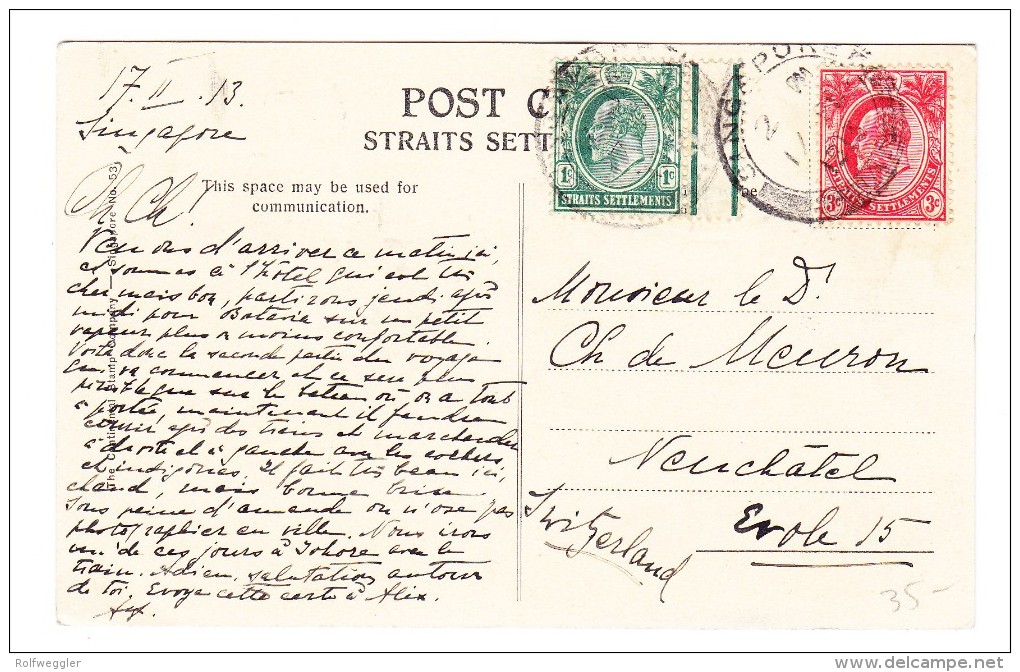 17. II. 13.
Singapore
POST C
STRAITS SETT
This space may be used for
communication.
Ch Ch!
Venons d'arriver ce matin ici,
et sommes à l'hôtel qui est très
cher mais bon, partirons jeudi après
midi pour Batavia sur un petit
vapeur plus ou moins confortable.
Voilà donc la seconde partie du voyage
qui va commencer et ce sera plus
que sur le bateau où on a tout
à portée, maintenant il faudra
courir après des trains et marchander
à droite et à gauche avec les cochers
et indigènes. Il fait très beau ici,
chaud, mais bonne brise.
Sous peine d'amende on n'ose pas
photographier en ville. Nous irons
un de ces jours à Johore avec le
train. Adieu, salutations autour
de toi. Envoye cette carte à Alix.
The Continental Stamp Company — Singapore No. 53
SINGAPORE
1c 1c
STRAITS SETTLEMENTS
SINGAPORE
3c 3c
STRAITS SETTLEMENTS
be
Monsieur le Dr.
Ch de Meuron
Neuchâtel
Evole 15
Switzerland
35-
Rolfweggler
delcampe.net